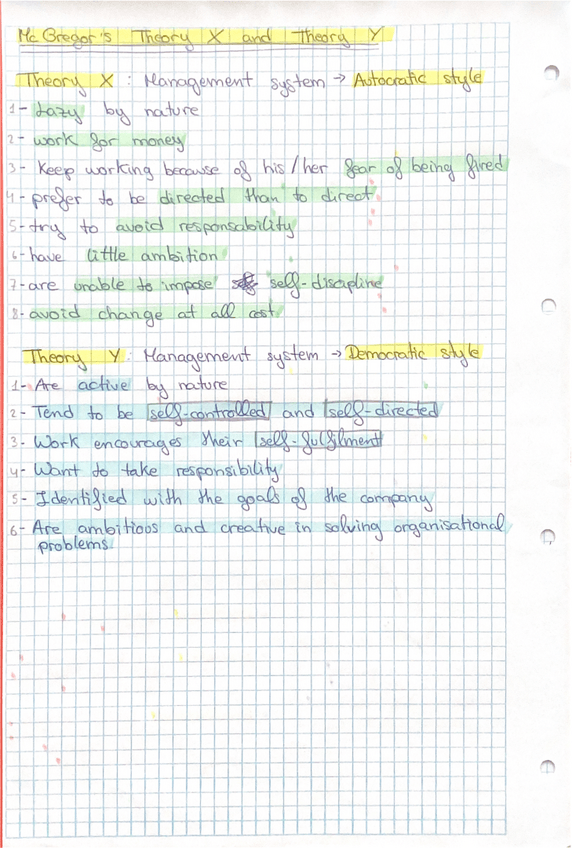 Mc Gregor's Theory X and Theory Y
Theory X : Management system → Autocratic style
1- Lazy by nature
2- work for money
3- Keep working because of his/her fear of being fired
4- prefer to be directed than to direct
5- try to avoid responsability
6- have little ambition
7- are unable to impose self-discipline
8- avoid change at all cost
Theory Y: Management system → Democratic style
1- Are active by nature
2- Tend to be self-controlled and self-directed
3- Work encourages their self-fulfilment
4- Want to take responsibility
5- Identified with the goals of the company
6- Are ambitious and creative in solving organisational
problems.